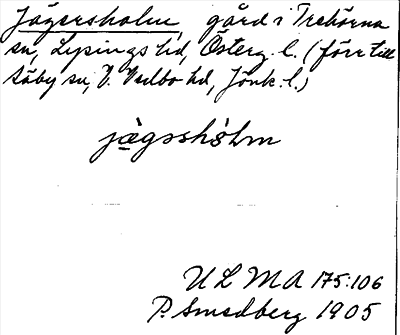 Jägersholm, gård i Trehörna
sn, Lysings hd, Österg. l. (förr till
Säby sn, V. Vedbo hd, Jönk. l.)
jägsshòlm
ULMA 175:106
P. Smedberg 1905